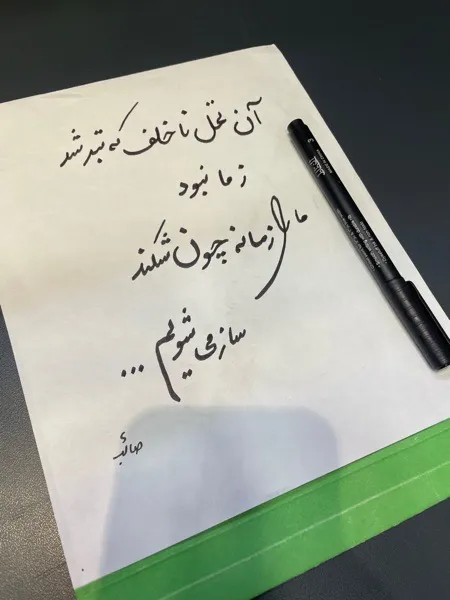 آن نخل ناخلف که تبر شد
ز ما نبود
ما را زمانه چون شکند
ساز می شویم ...
صائب